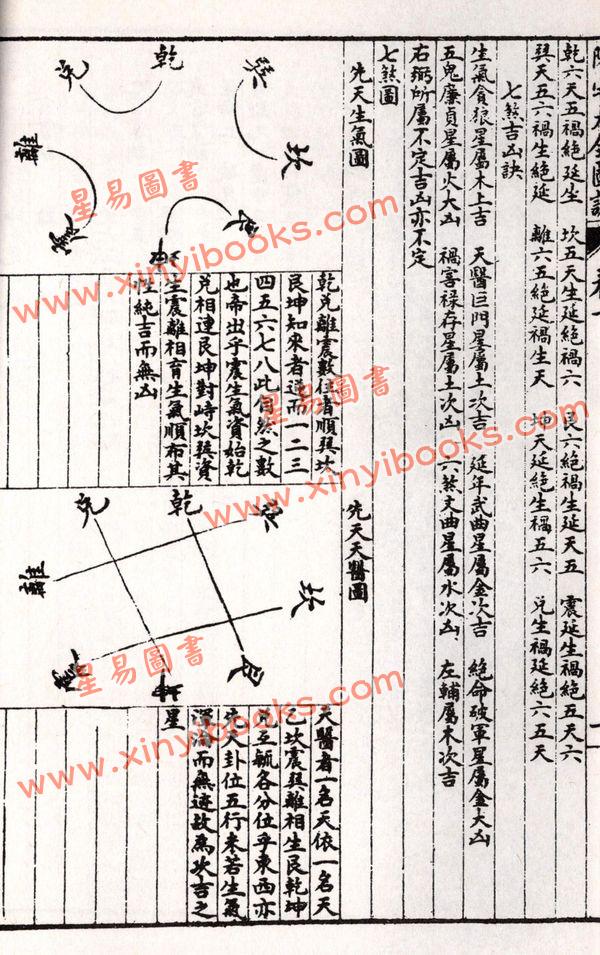 乾六天五禍絕延生 坎五天生延絕禍六 艮六絕禍生延天五 震延生禍絕五天六
巽天五六禍生絕延 離六五絕延禍生天 坤天延絕生禍五六 兌生禍延絕六五天
七煞吉凶訣
生氣貪狼星屬木上吉 天醫巨門星屬土次吉 延年武曲星屬金次吉 絕命破軍星屬金大凶
五鬼廉貞星屬火大凶 禍害祿存星屬土次凶 六煞文曲星屬水次凶 左輔屬木次吉
右弼所屬不定吉凶亦不定
七煞圖
先天生氣圖
巽
坎
乾
兌
離
震
艮
坤
乾兌離震數往者順巽坎
艮坤知來者逆而一二三
四五六七八此自然之數
也帝出乎震生氣資始乾
兌相連艮坤對峙坎巽資
生震離相育生氣順布其
性純吉而無凶
先天天醫圖
巽
坎
艮
乾
兌
離
震
坤
天醫者一名天依一名天
乙坎震巽離相生艮乾坤
兌互毓各分位乎東西亦
先天卦位五行來若生氣
而無迹故為次吉之
星
星易圖書
www.xinyibooks.com
星易圖書
www.xinyibooks.com
星易圖書
www.xinyibooks.com
星易圖書
www.xinyibooks.com